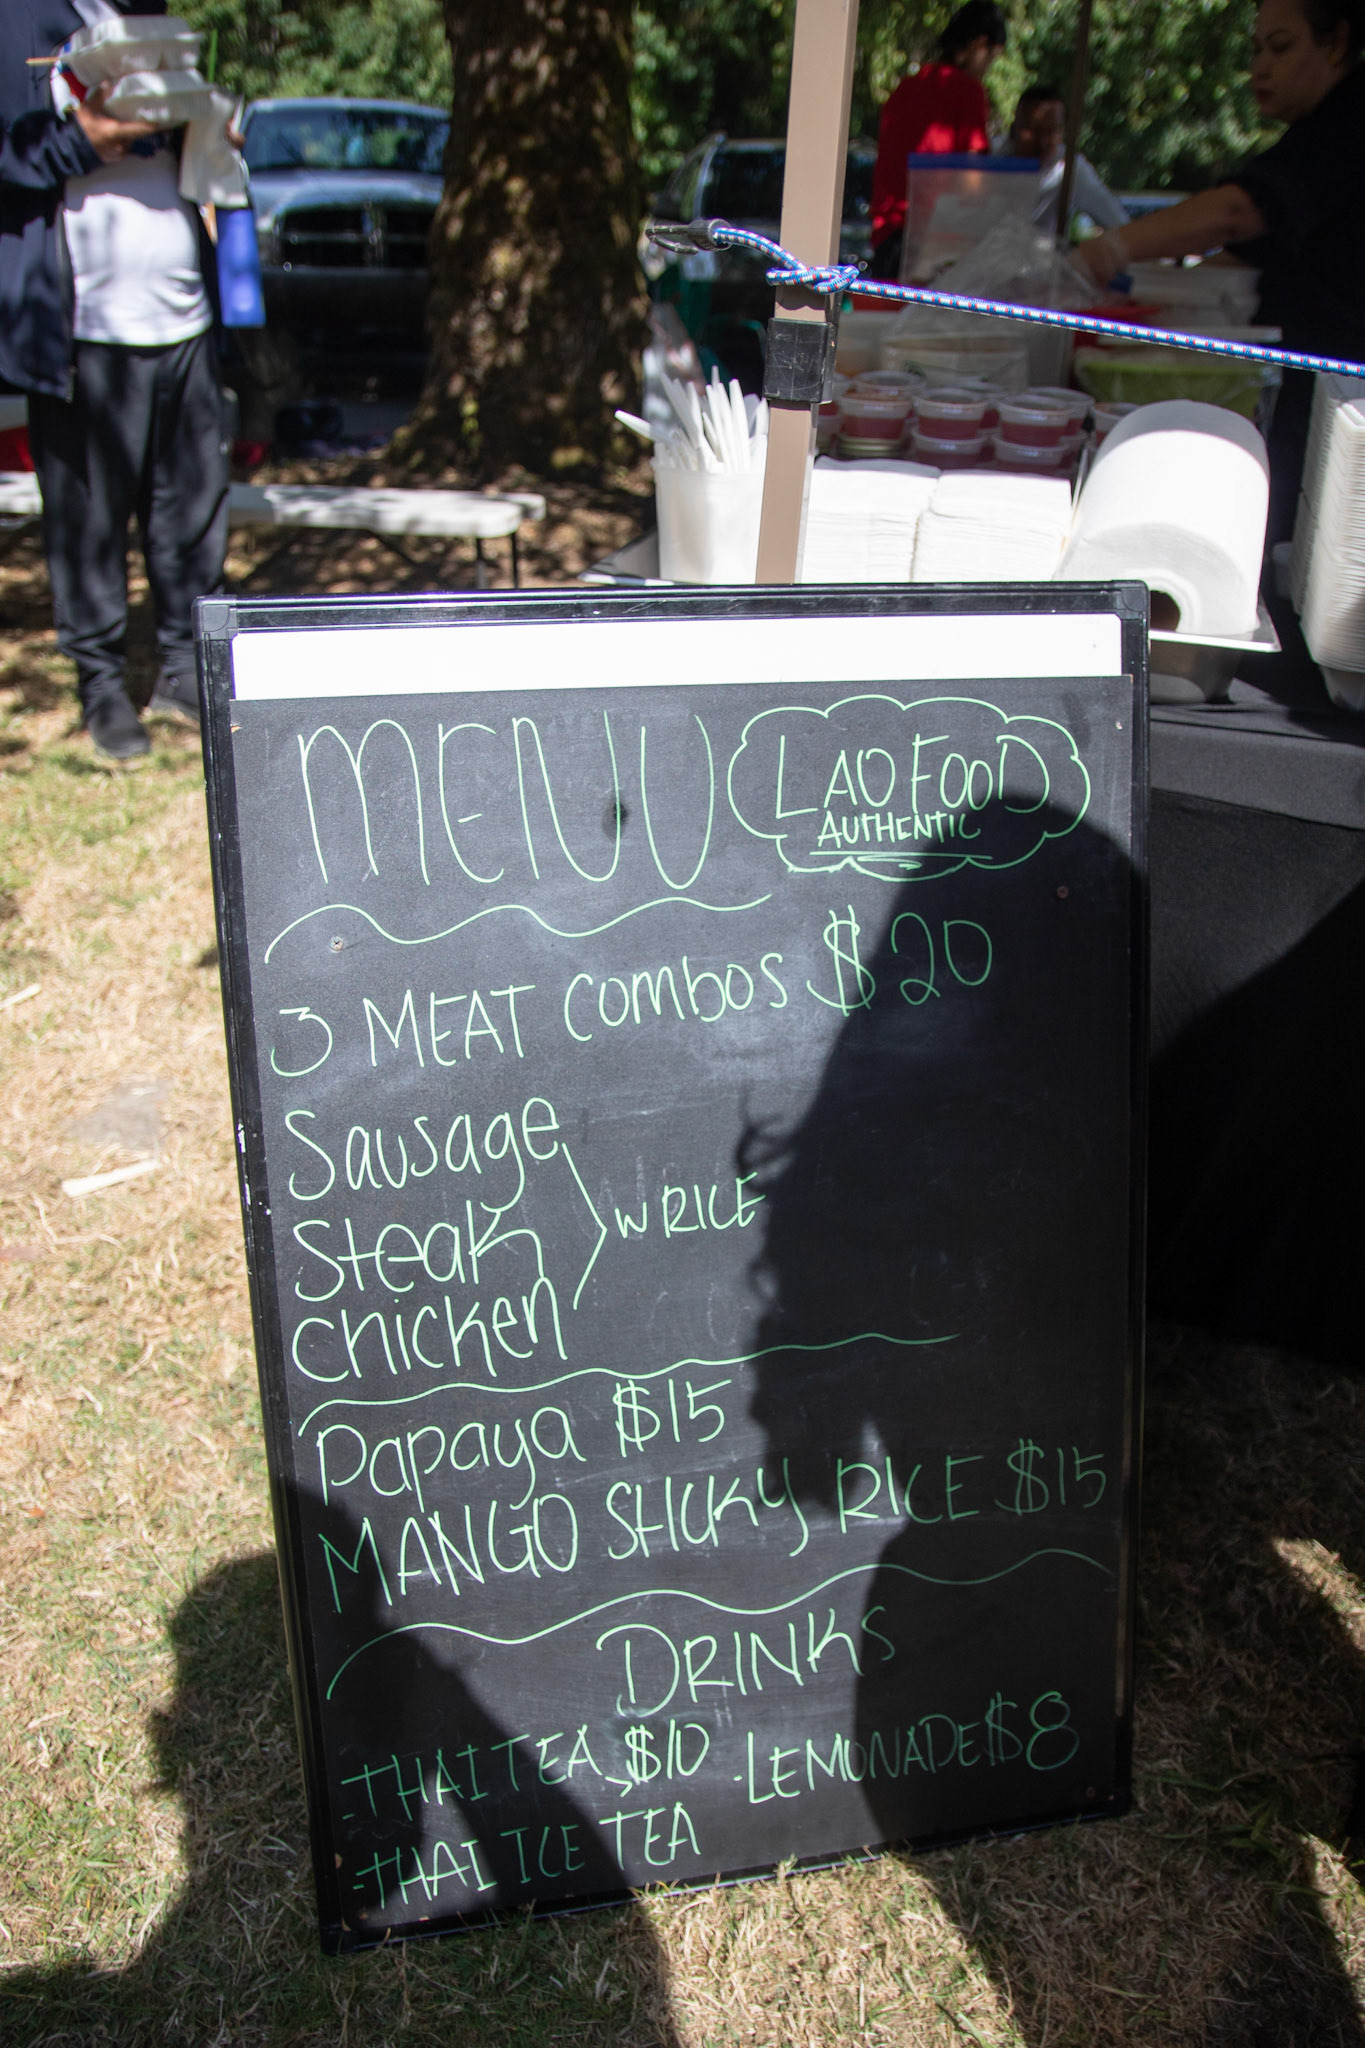 MENU
LAO FOOD
AUTHENTIC
3 MEAT COMBOS $20
Sausage
Steak
chicken
W RICE
Papaya $15
MANGO STICKY RICE $15
DRINKS
-THAI TEA $10
-LEMONADE $8
-THAI ICE TEA